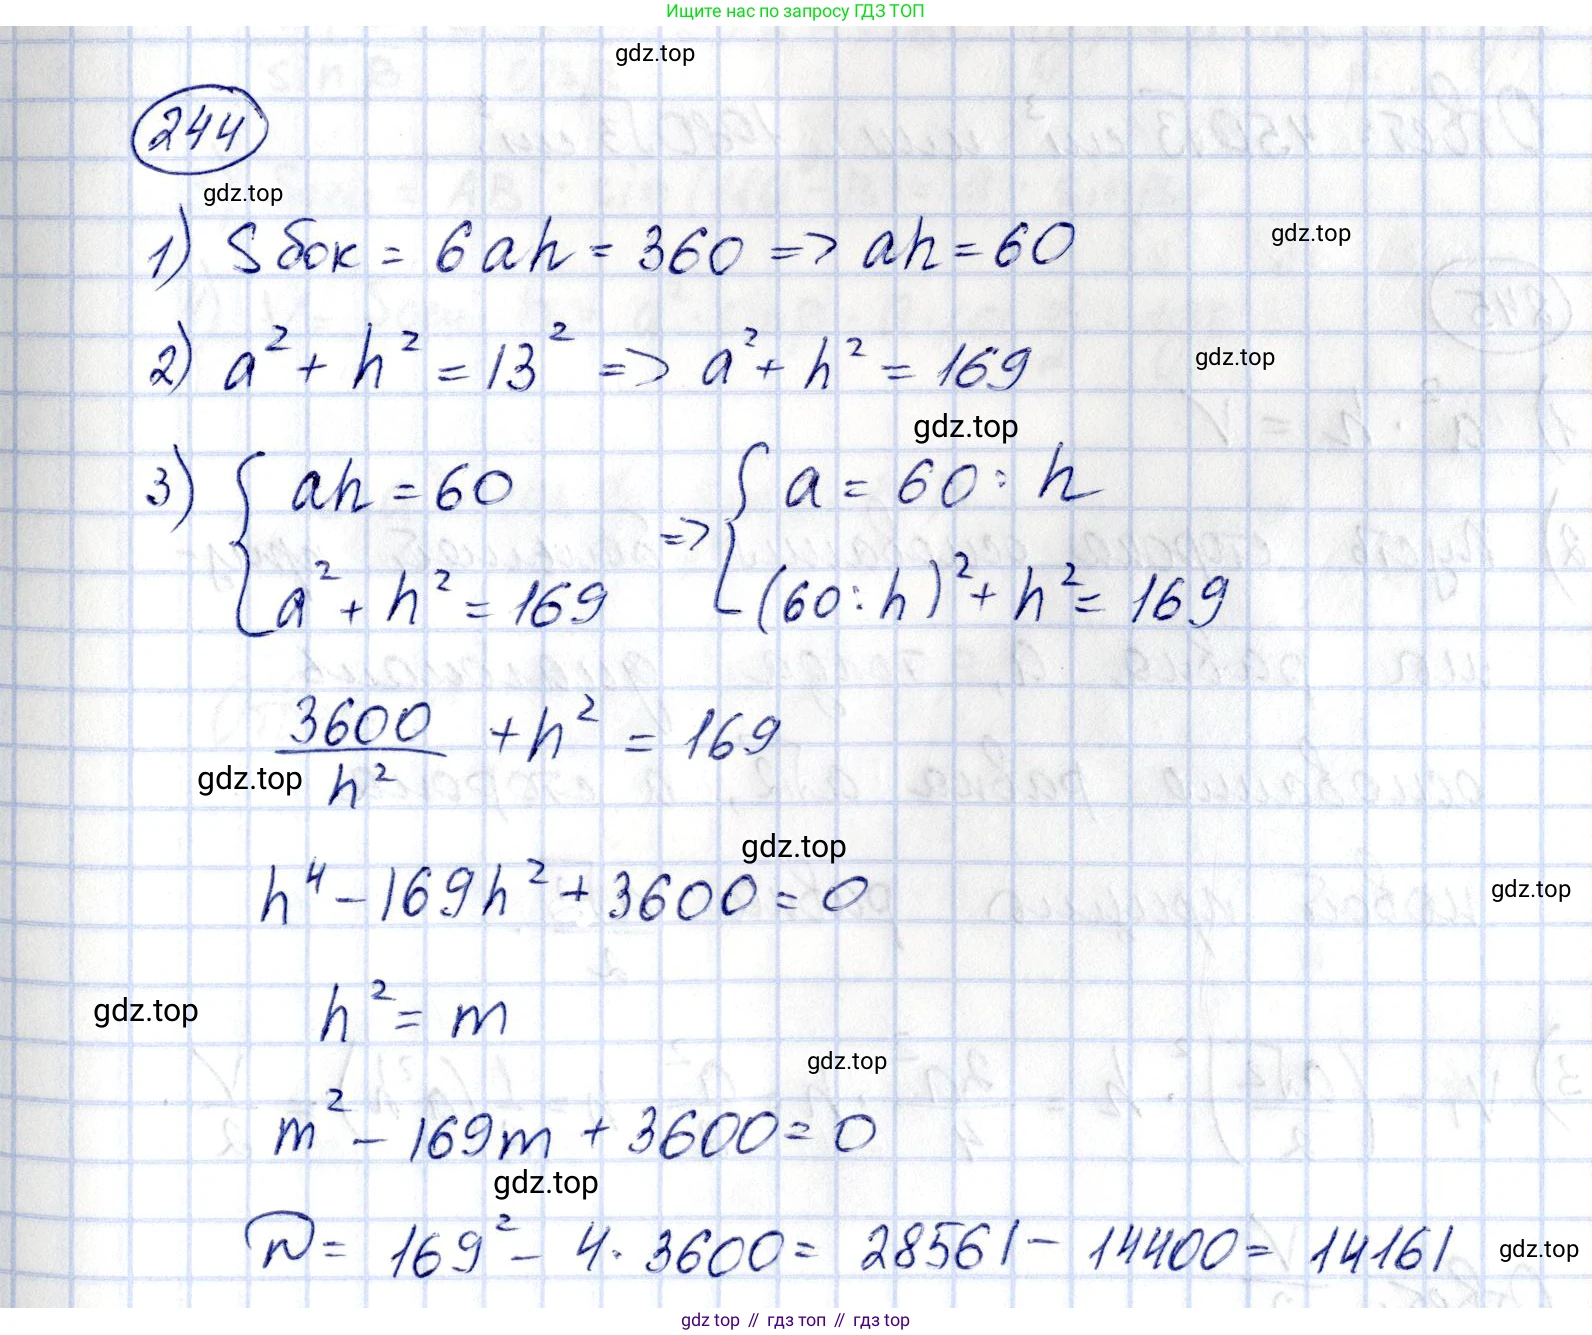 Ищите нас по запросу ГДЗ ТОП
gdz.top
244
gdz.top
1) Sбок = 6ah = 360 => ah = 60
gdz.top
2) a² + h² = 13² => a² + h² = 169
gdz.top
gdz.top
3) { ah = 60 => { a = 60 : h
a² + h² = 169 (60 : h)² + h² = 169
3600 + h² = 169
gdz.top h²
gdz.top
h⁴ - 169h² + 3600 = 0
gdz.top
gdz.top h² = m
gdz.top
m² - 169m + 3600 = 0
gdz.top
D = 169² - 4 · 3600 = 28561 - 14400 = 14161
gdz.top
gdz top // гдз топ // гдз top